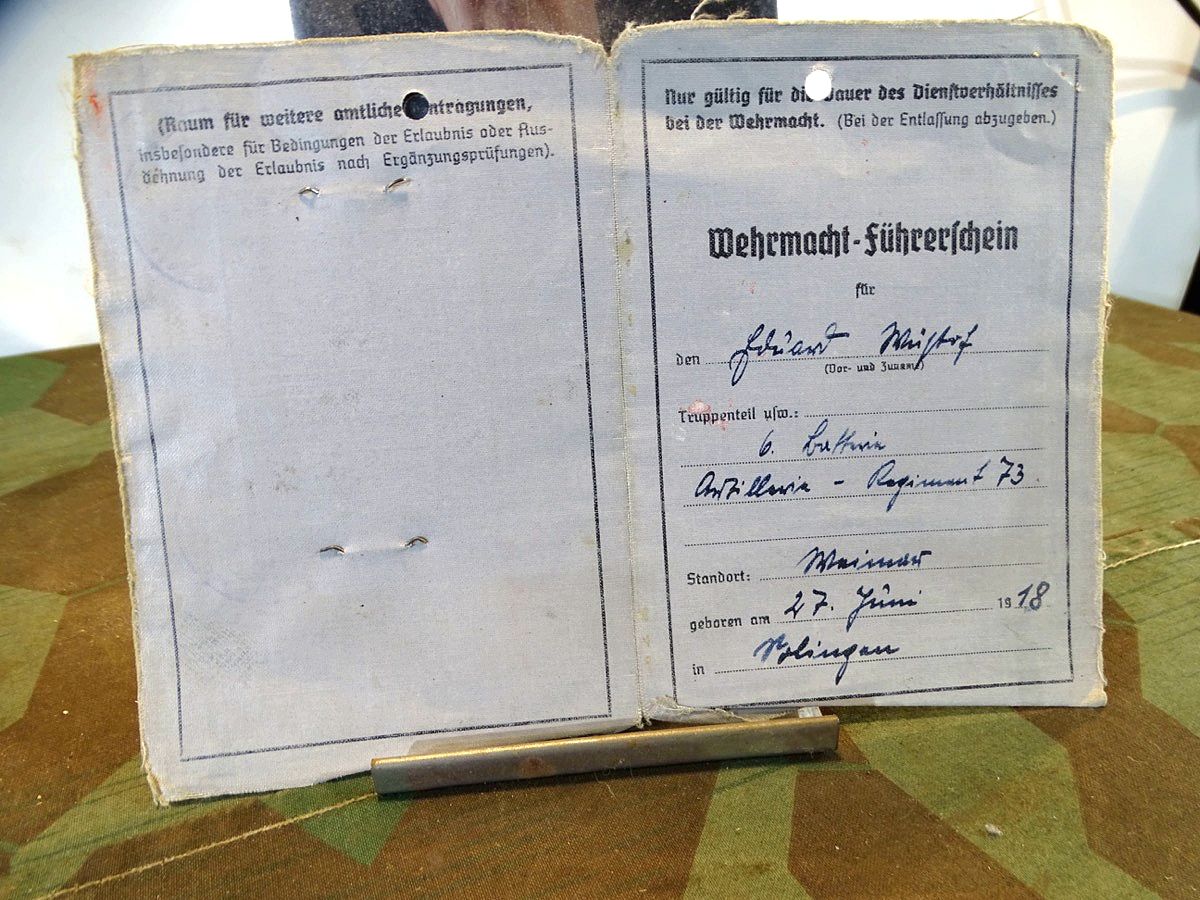 (Raum für weitere amtliche Eintragungen,
insbesondere für Bedingungen der Erlaubnis oder Aus-
dehnung der Erlaubnis nach Ergänzungsprüfungen).
Nur gültig für die Dauer des Dienstverhältnisses
bei der Wehrmacht. (Bei der Entlassung abzugeben.)
Wehrmacht-Führerschein
für
den Eduard
(Vor- und Zuname)
Truppenteil usw.:
6. Batterie
Artillerie - Regiment 73.
Standort: Weimar
geboren am 27. Juni 1918
in Solingen